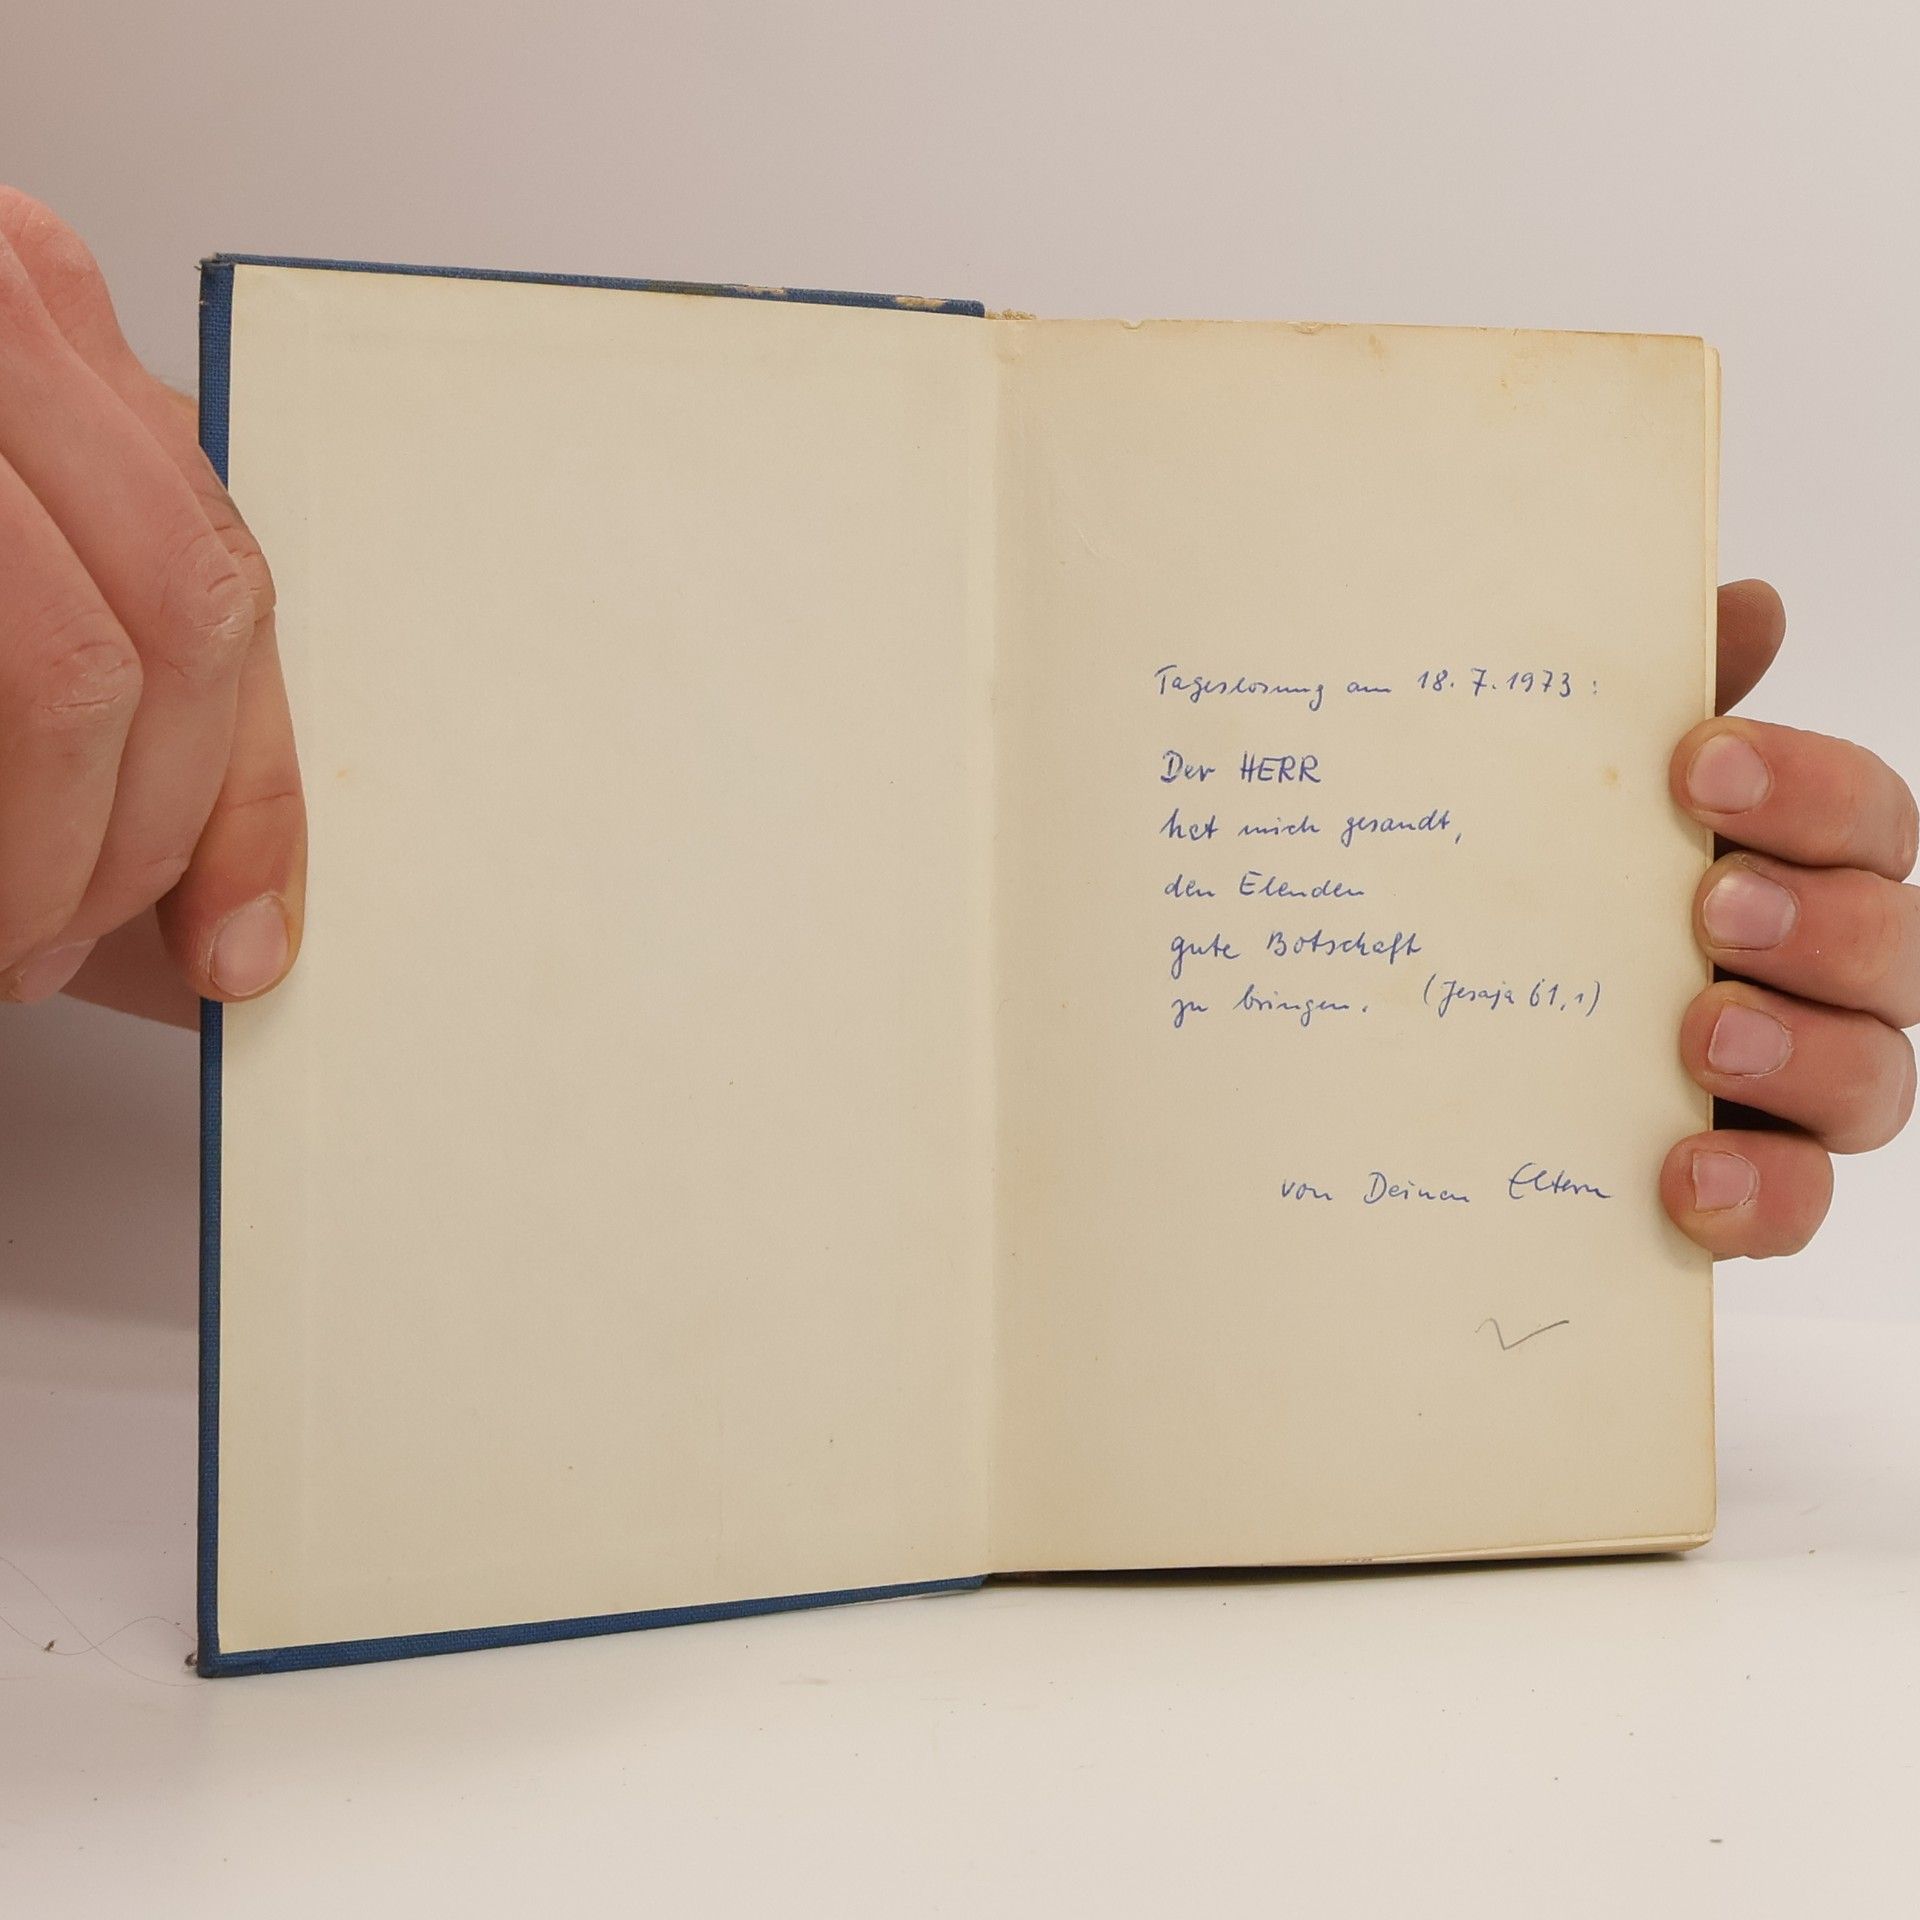 Tageslosung am 18.7.1973:
Der HERR
hat mich gesandt,
den Elenden
gute Botschaft
zu bringen. (Jesaja 61,1)
von Deinen Eltern